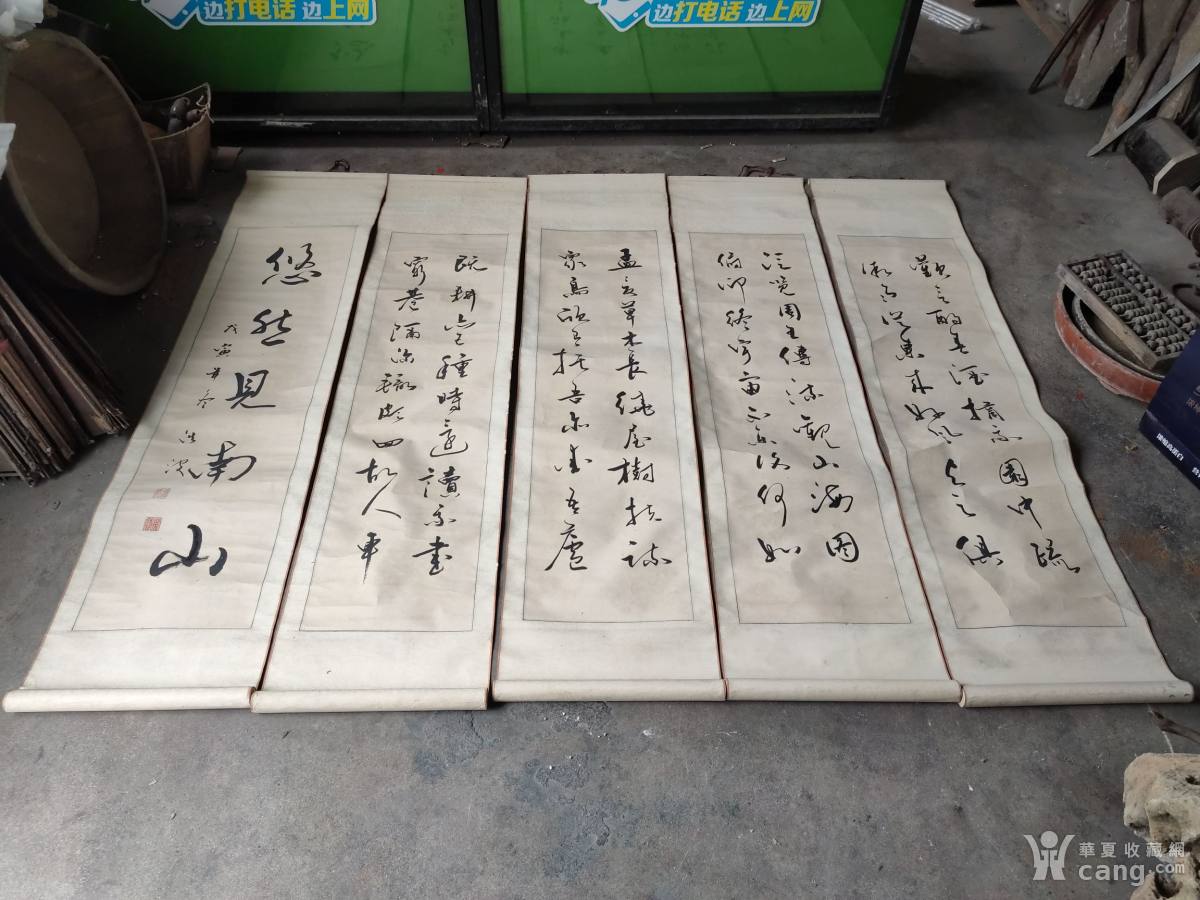 边打电话 边上网
边打电话 边上网
歡言酌春酒摘我園中蔬
微雨從東來好風與之俱
泛覽周王傳流觀山海圖
俯仰終宇宙不樂復何如
孟夏草木長繞屋樹扶疏
眾鳥欣有托吾亦愛吾廬
既耕亦已種時還讀我書
窮巷隔深轍頗回故人車
悠然見南山
戊寅年冬
華夏收藏網
cang.com